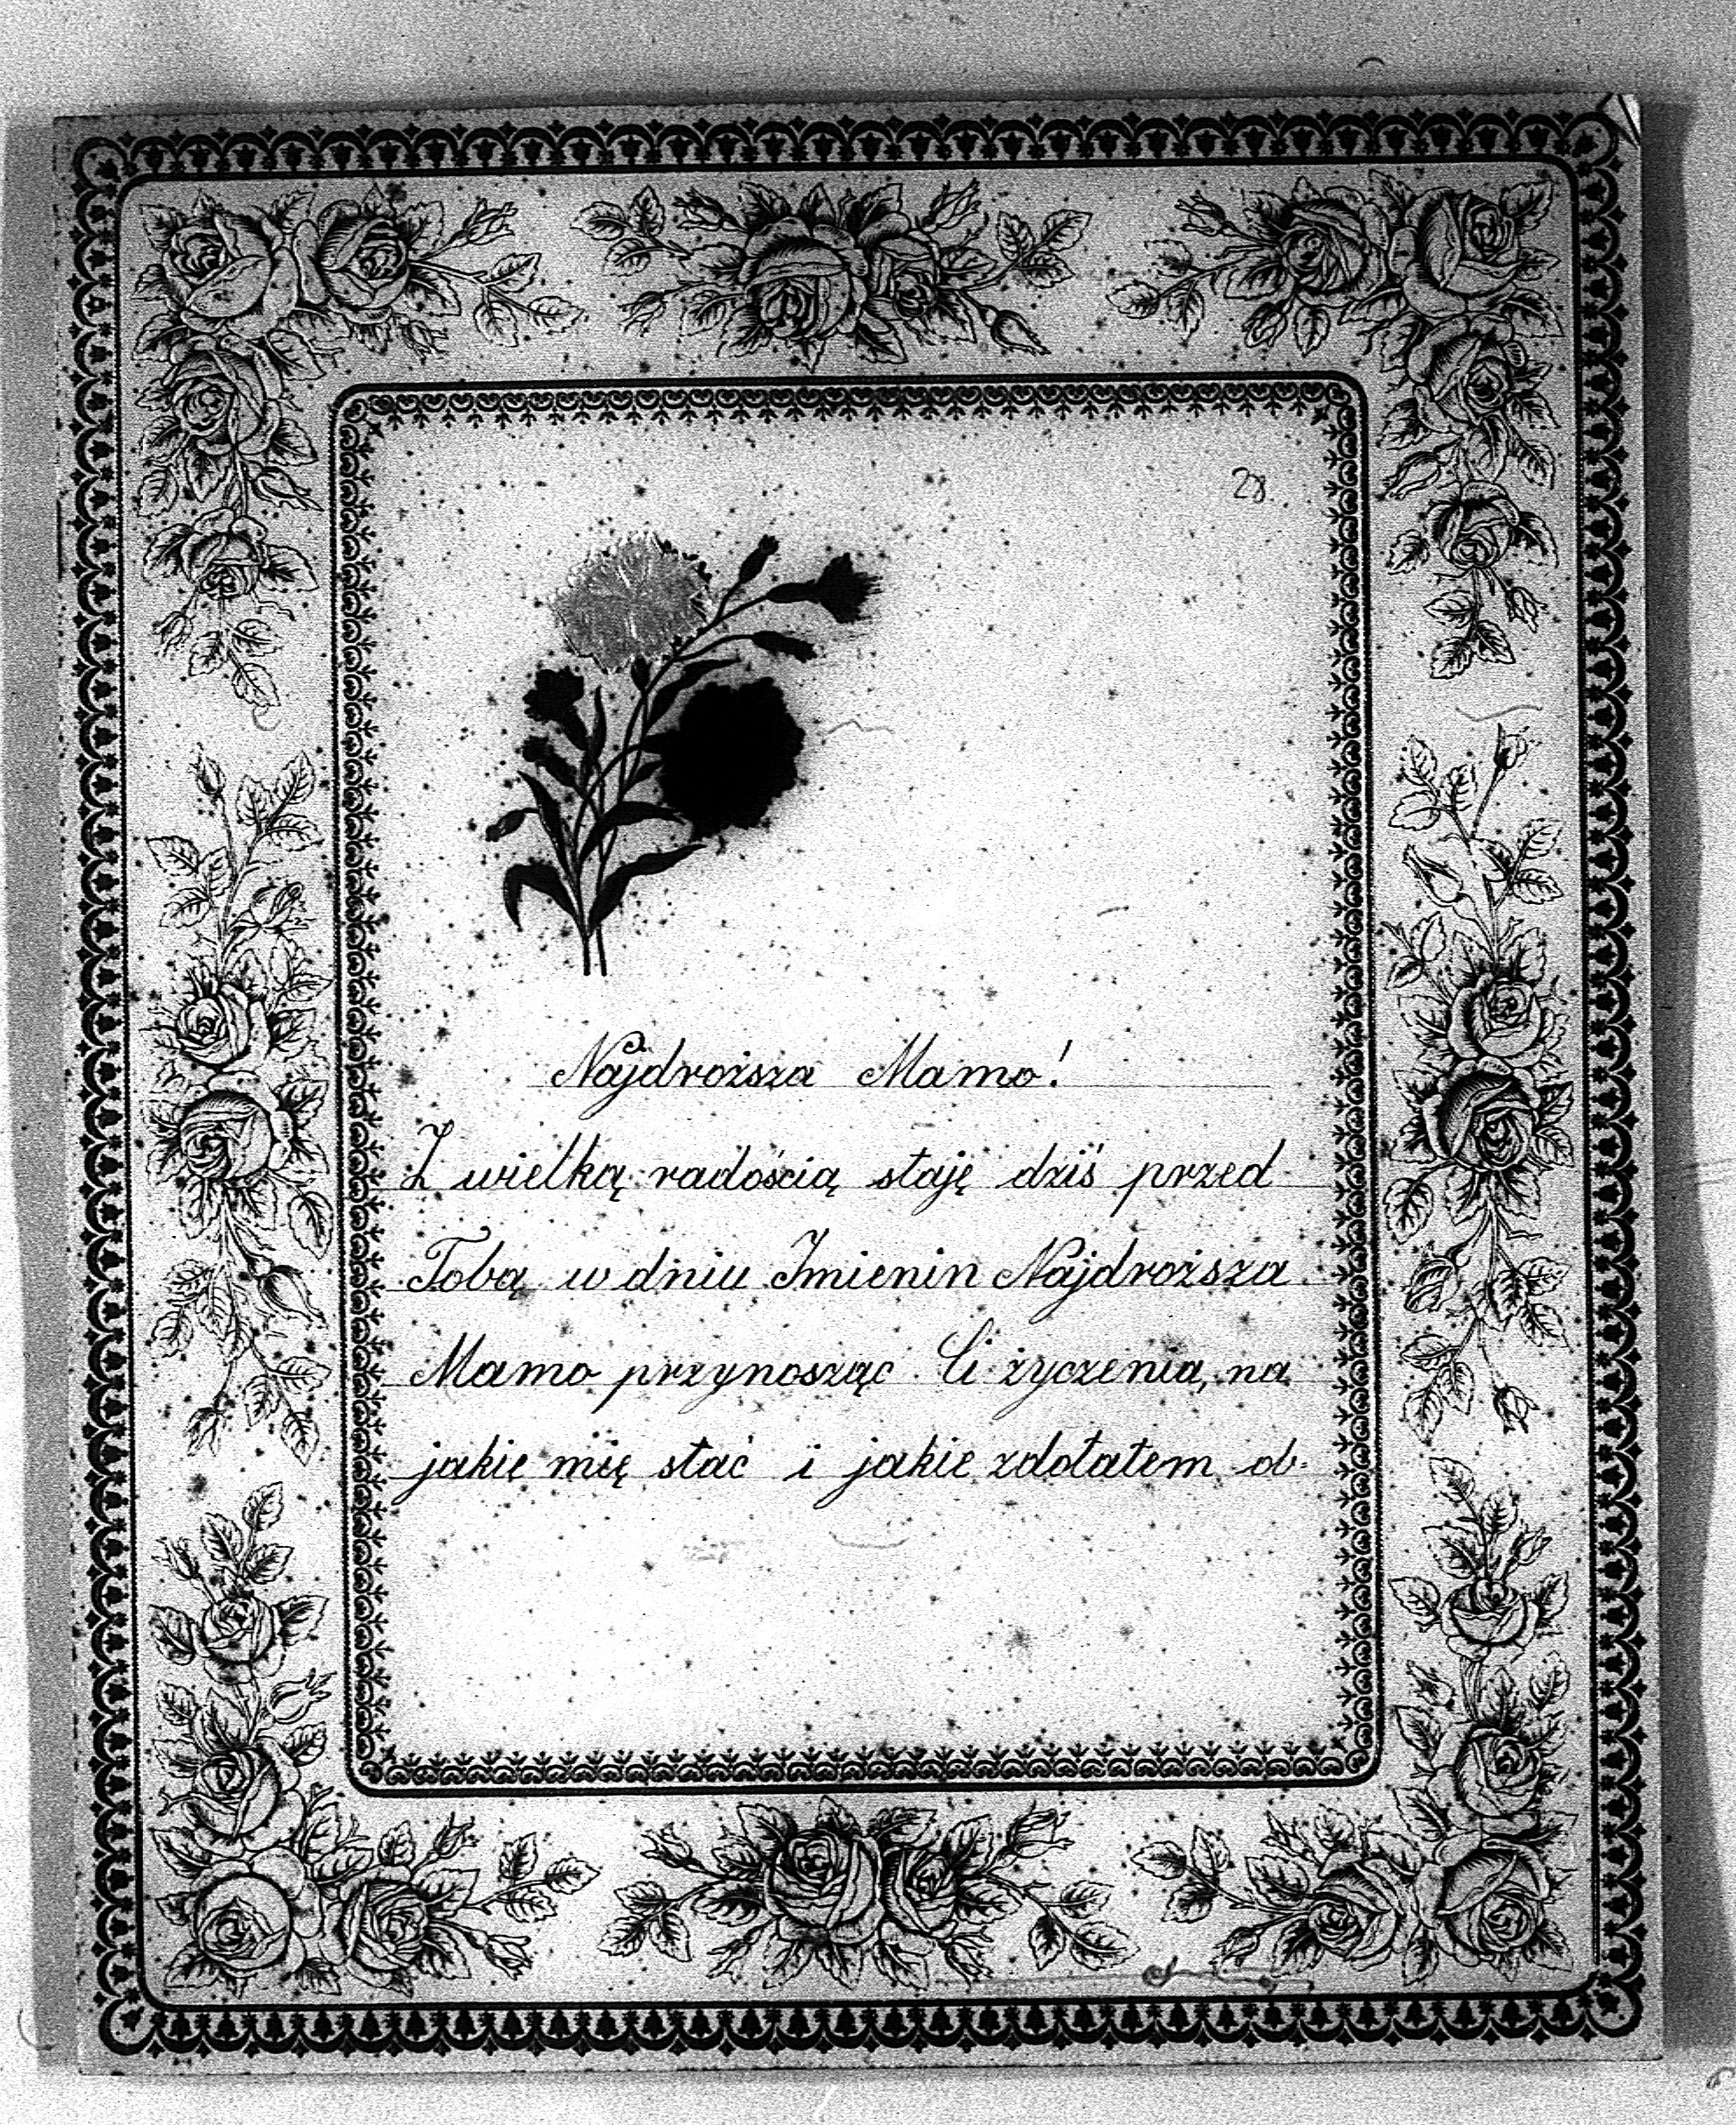 28
Najdroższa Mamo!
Z wielką radością staję dziś przed
Tobą w dniu Imienin Najdroższa
Mamo przynosząc Ci życzenia, na
jakie mię stać i jakie zdołałem ob-